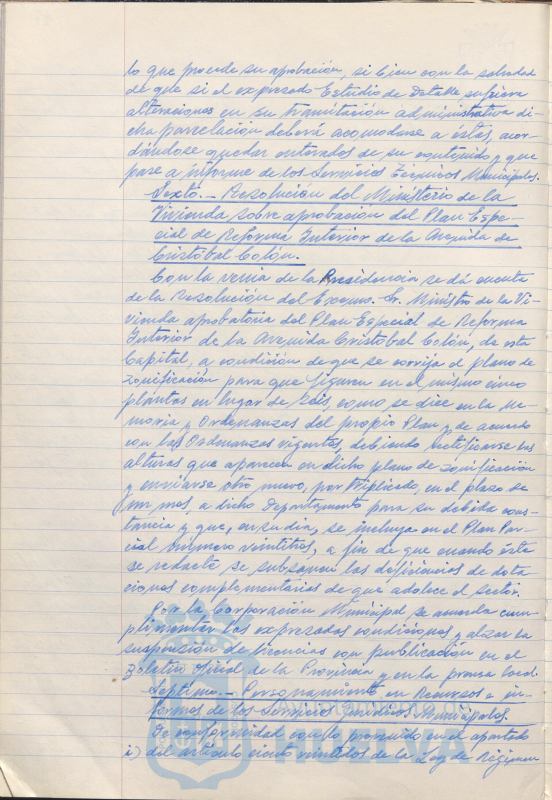 lo que procede su aprobación, si bien con la salvedad
de que si el expresado Estudio de Detalle sufriera
alteraciones en su tramitación administrativa di-
cha parcelación deberá acomodarse a éstas, acor-
dándose quedar enterados de su contenido y que
pase a informe de los Servicios Técnicos Municipales.
Sexto.- Resolución del Ministerio de la
Vivienda sobre aprobación del Plan Espe-
cial de Reforma Interior de la Avenida de
Cristóbal Colón.
Con la venia de la Presidencia se dá cuenta
de la Resolución del Excmo. Sr. Ministro de la Vi-
vienda aprobatoria del Plan Especial de Reforma
Interior de la Avenida Cristóbal Colón, de esta
Capital, a condición de que se corrija el plano de
zonificación para que figuren en el mismo cinco
plantas en lugar de seis, como se dice en la Me-
moria y Ordenanzas del propio Plan y de acuerdo
con las Ordenanzas vigentes, debiendo rectificarse las
alturas que aparecen en dicho plano de zonificación
y enviarse otro nuevo, por triplicado, en el plazo de
un mes, a dicho Departamento para su debida cons-
tancia y que, en su día, se incluya en el Plan Par-
cial número veintitres, a fin de que cuando éste
se redacte se subsanen las deficiencias de dota
ciones complementarias de que adolece el sector.
Por la Corporación Municipal se acuerda cum-
plimentar las expresadas condiciones y alzar la
suspensión de licencias con publicación en el
Boletín Oficial de la Provincia y en la prensa local.
Séptimo.- Personamiento en Recursos e in-
formes de los Servicios Jurídicos Municipales.
De conformidad con lo prevenido en el apartado
i) del artículo ciento veintidos de la Ley de Régimen